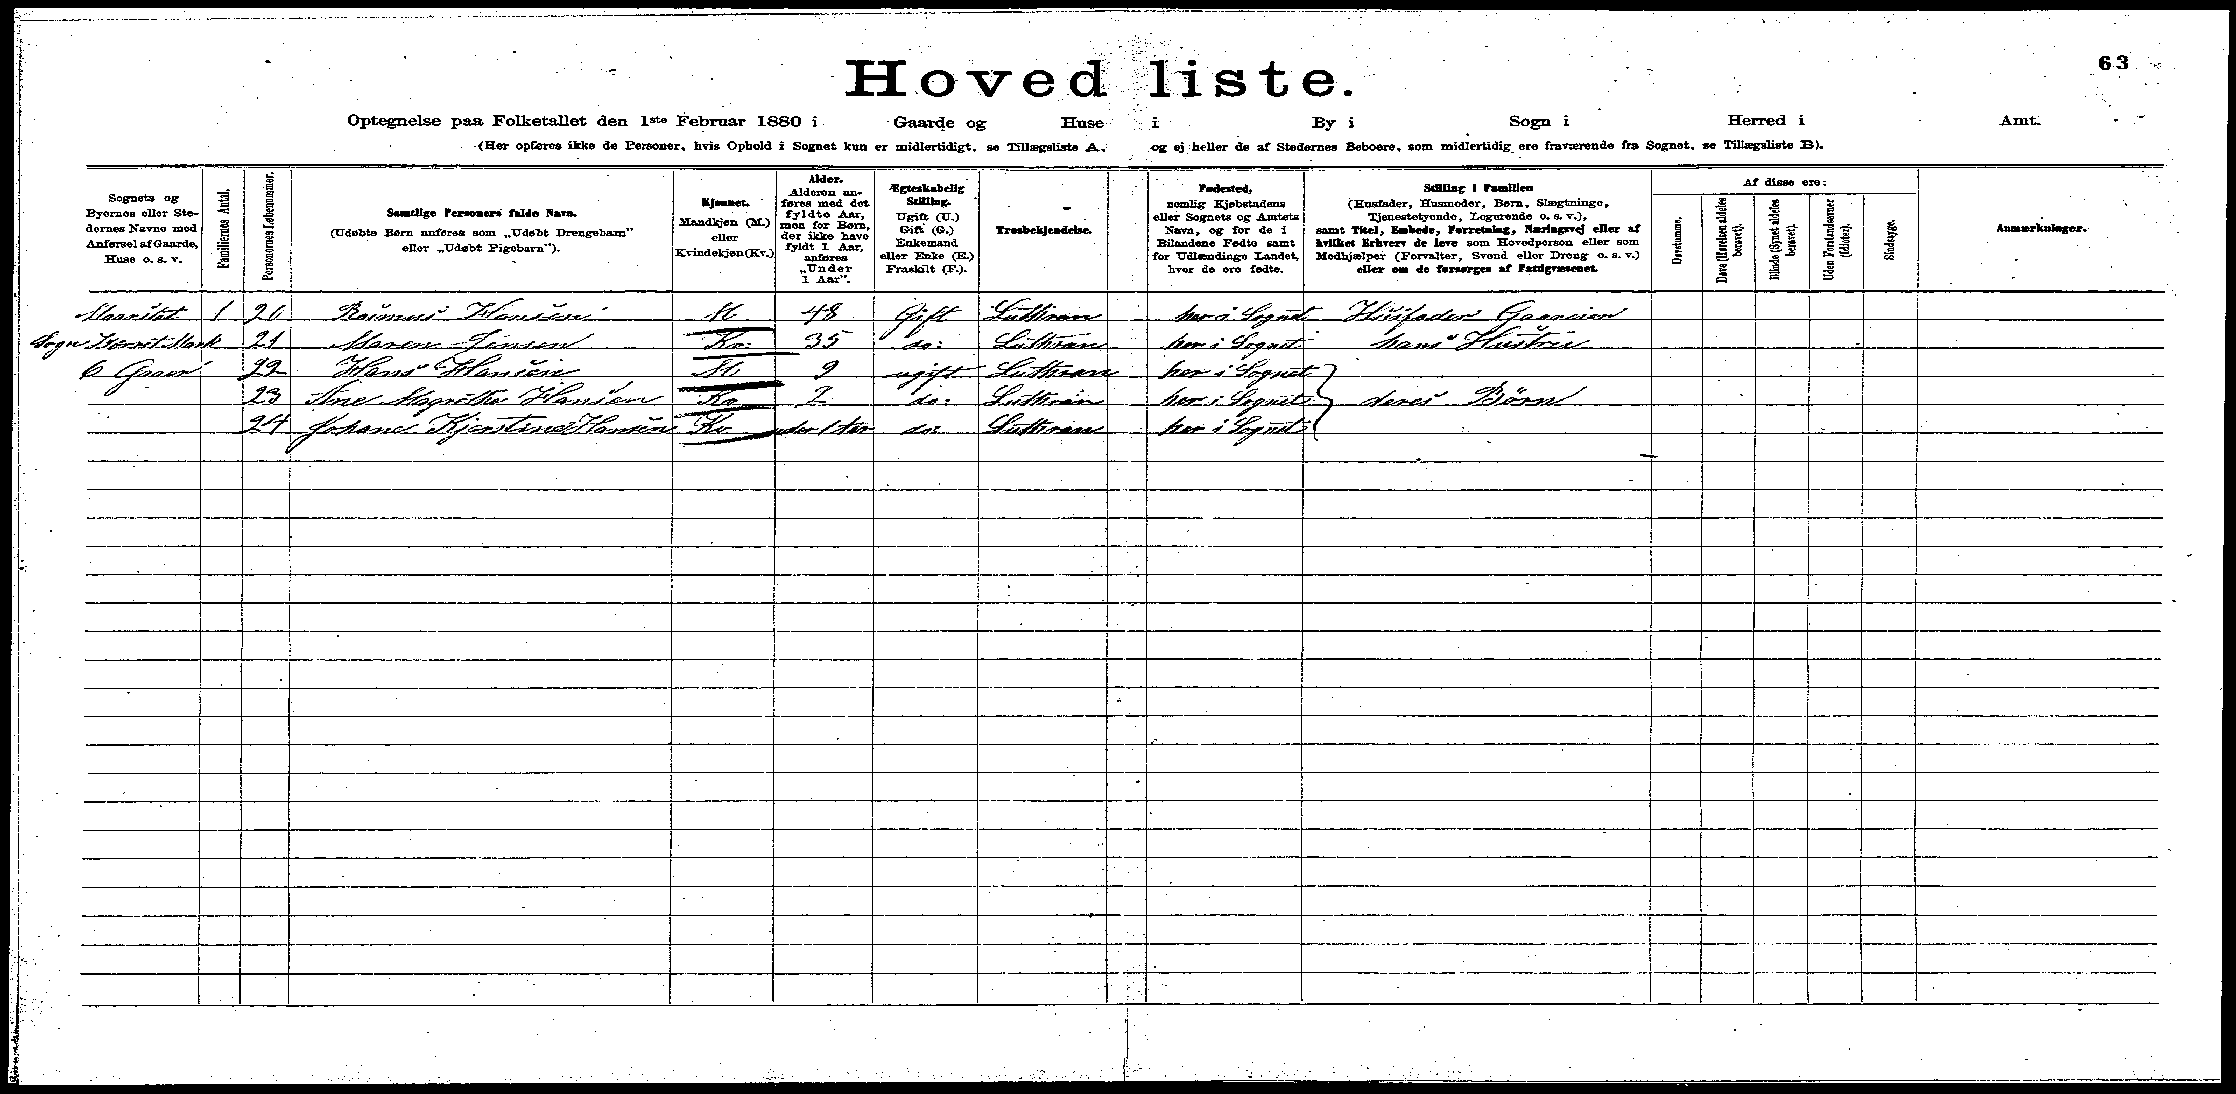 63
Hovedliste.
Optegnelse paa Folketallet den 1ste Februar 1880 i Gaarde og Huse i By i Sogn i Herred i Amt.
(Her opføres ikke de Personer, hvis Ophold i Sognet kun er midlertidigt, se Tillægsliste A, og ej heller de af Stedernes Beboere, som midlertidig ere fraværende fra Sognet, se Tillægsliste B).
Sognets og
Byernes eller Ste-
dernes Navne med
Anførsel af Gaarde,
Huse o. s. v.
Familiernes Antal.
Personernes Løbenummer.
Samtlige Personers fulde Navn.
(Udøbte Børn anføres som „Udøbt Drengebarn”
eller „Udøbt Pigebarn”).
Kjønnet.
Mandkjøn (M.)
eller
Kvindekjøn (Kv.)
Alder.
Alderen an-
føres med det
fyldte Aar,
men for Børn,
der ikke have
fyldt 1 Aar,
anføres
„Under
1 Aar”.
Ægteskabelig
Stilling.
Ugift (U.)
Gift (G.)
Enkemand
eller Enke (E.)
Fraskilt (F.).
Trosbekjendelse.
Fødested,
nemlig Kjøbstadens
eller Sognets og Amtets
Navn, og for de i
Bilandene Fødte samt
for Udlændinge Landet,
hvor de ere fødte.
Stilling i Familien
(Husfader, Husmoder, Børn, Slægtninge,
Tjenestetyende, Logerende o. s. v.),
samt Titel, Embede, Forretning, Næringsvej eller af
hvilket Erhverv de leve som Hovedperson eller som
Medhjælper (Forvalter, Svend eller Dreng o. s. v.)
eller om de forsørges af Fattigvæsenet.
Af disse ere:
Døvstumme.
Døve (Hørelsen aldeles
berøvet).
Blinde (Synet aldeles
berøvet).
Uden Forstandsevner
(Idioter).
Sindssyge.
Anmærkninger.
1 20 Rasmus Hansen M 48 Gift Luthran her i Sognet Huusfader
Sogn Mark 21 Maren Jensen Kv: 35 do: Luthran her i Sognet hans Hustru
22 Hans Hansen M 9 ugift Luthran her i Sognet
23 Ane Hansen Kv 2 do: Luthran her i Sognet deres Børn
24 Johane Kjerstine Hansen Kv under 1 Aar do: Luthran her i Sognet